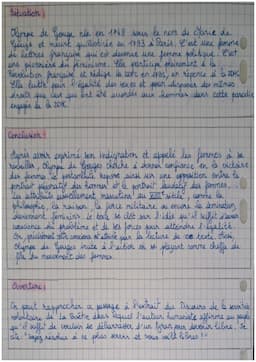 Situation :
Olympe de Gouge, née en 1748 sous le nom de Marie de
Gouze et meurt guillotinée en 1793 à Paris. C'est une femme
de lettres française qui est devenue une femme politique. C'est
une pionnière du féminisme. Elle participe pleinement à la
Révolution française et rédige la DDFC en 1791, en réponse à la DDHC
Elle lutte pour l'égalité des sexes et pour disposer des mêmes
droits que ceux qui ont été accordés aux hommes dans cette parodie
engagée de la DDHC.
Conclusion :
Après avoir exprimé son indignation et appelé les femmes à se
réveiller, Olympe de Gouges cherche à donner confiance en la victoire
des femmes. Le postambule repose ainsi sur une opposition entre le
portrait péjoratif des hommes et le portrait laudatif des femmes.
Les attributs essentiellement masculins du XVIII siècle, comme la
philosophie, la raison, la force militaire ou encore la domination,
deviennent féminins. Le texte se clôt sur l'idée qu'il suffit d'avoir
conscience du problème et de ses forces pour atteindre l'égalité.
la lecture de ce texte,
Olympe de Gouges invite à l'action en se plaçant comme cheffe de
file du mouvement des femmes.
Ouverture :
On peut rapprocher ce passage à l'extrait du Discours de la servitude
volontaire de La Boétie dans lequel l'auteur humaniste affirme au peuple
qu'il suffit de vouloir se débarrasser d'un tyran pour devenir libre. Je
cite "soyez résolus à ne plus servir et vous voilà libres !"